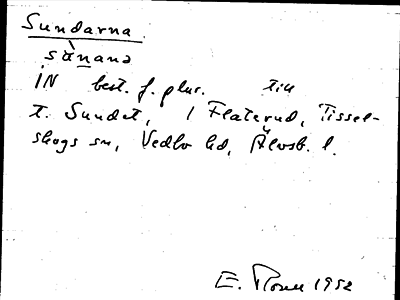 Sundarna
sànana
IN best. f. plur. till
t. Sundet, 1 Flaterud, Tissel-
skogs sn, Vedbo hd, Älvsb. l.
E. 1952